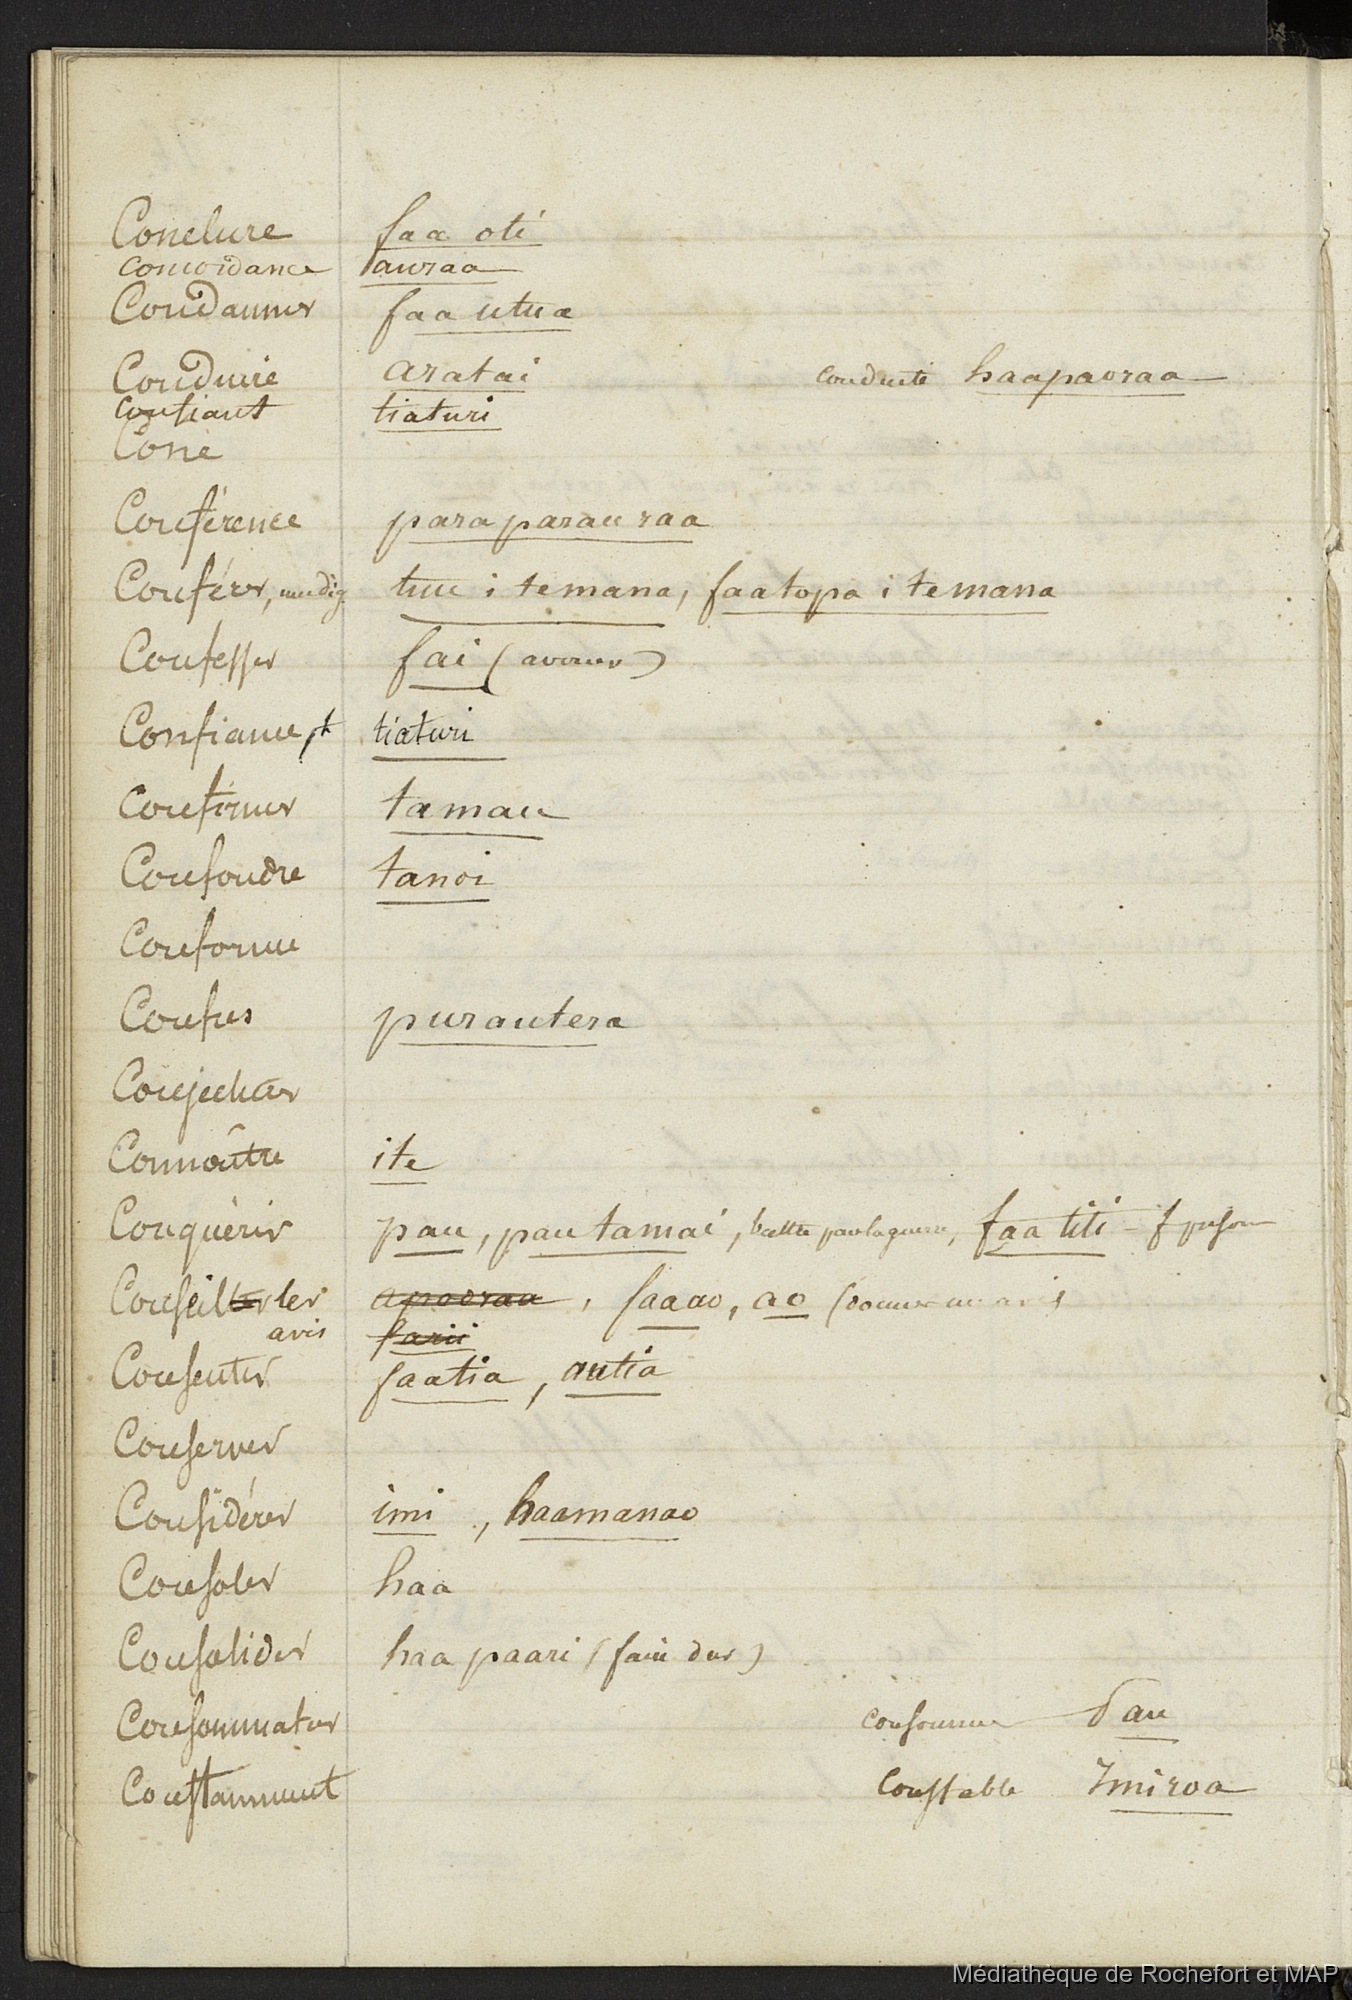 Conclure faa oti
concordance auraa
Condamner faa utua
Conduire aratai conduite haapaoraa
confiant tiaturi
Cone
Conférence paraparau raa
Conférer, une dig tuu i te mana, faatopa i te mana
Confesser fai (avouer)
Confiance, t tiaturi
Confirmer tamau
Confondre tanoi
Conforme
Confus purautera
Conjecturer
Connoître ite
Conquérir pau, pau tamai, battu par la guerre, faa titi - f prison
Conseiller apooraa, faaao, ao (donner un avis
avis farii
Consentir faatia, autia
Conserver
Considérer imi, haamanao
Consoler haa
Consolider haa paari (faire dur)
Consommateur consommer Pau
Constamment Constable Imiroa
Médiathèque de Rochefort et MAP